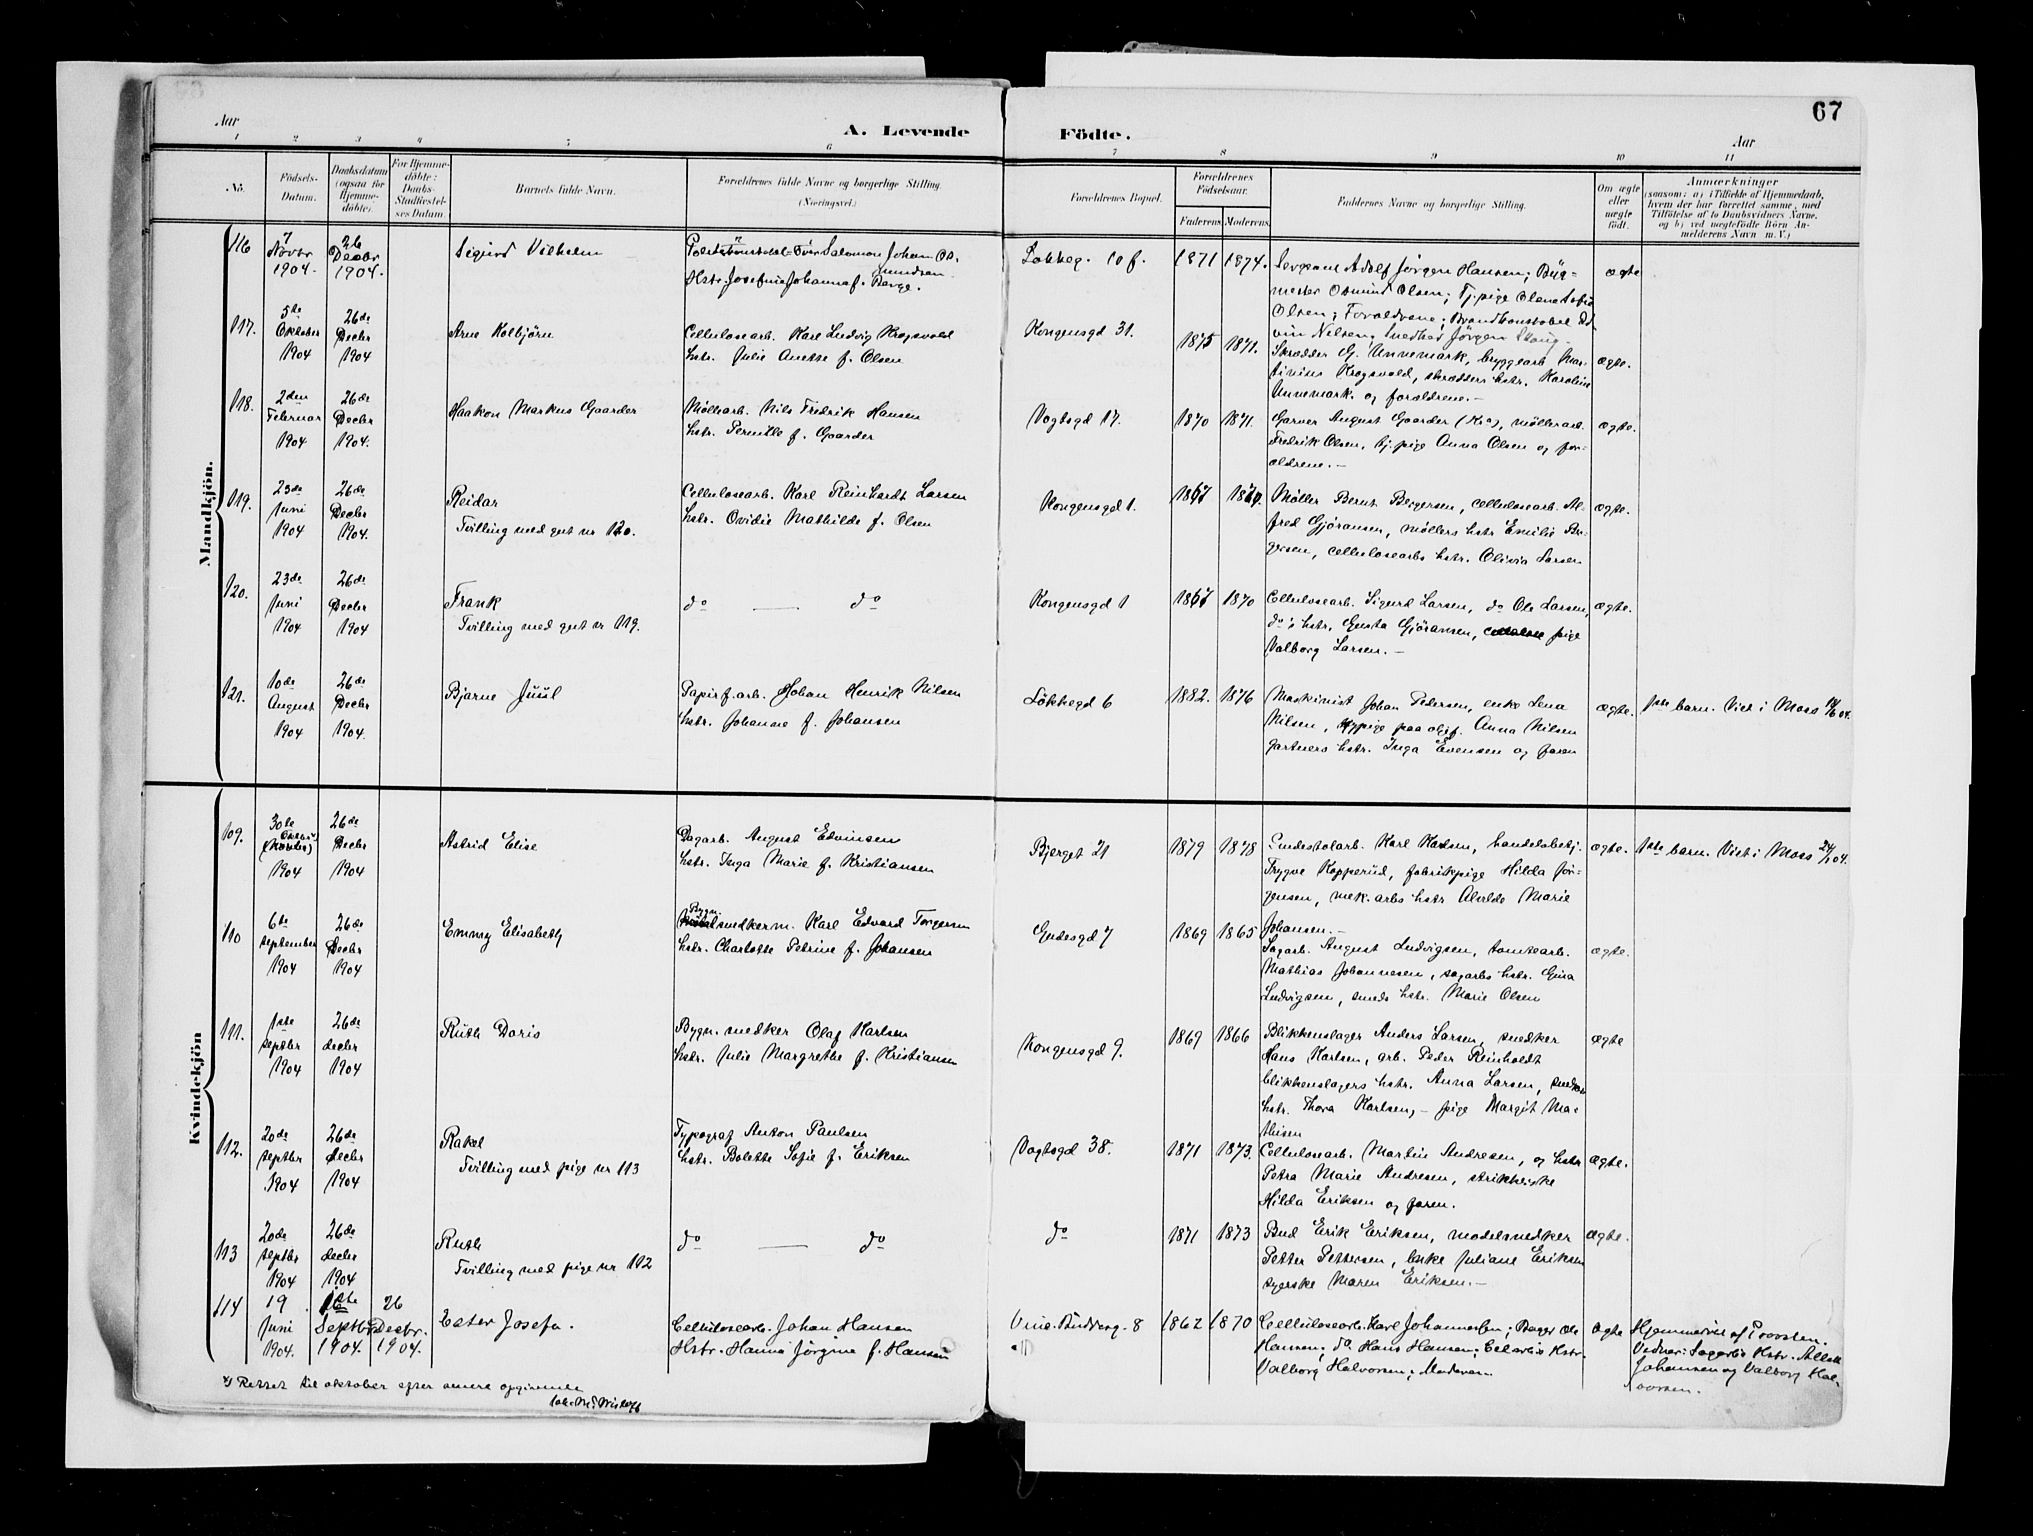 67
Aar
A. Levende Födte.
Aar
1 2 3 4 5 6 7 8 9 10 11
No.
Födsels-Datum.
Daabsdatum (ogsaa for Hjemmedöbte).
For Hjemmedöbte: Daabs-Stadfæstelses Datum.
Barnets fulde Navn.
Forældrenes fulde Navne og borgerlige Stilling. (Næringsvei.)
Forældrenes Bopæl.
Forældrenes Födselsaar.
Faderens. Moderens.
Faddernes Navne og borgerlige Stilling.
Om ægte eller uægte födt.
Anmærkninger
(saasom: a) i Tilfælde af Hjemmedaab,
hvem der har forrettet samme, med
Tilföielse af to Daabsvidners Navne,
og b) ved uægtefödte Börn Anmelderens Navn m. V.)
Mandkjön.
116 7 Novbr 1904. 26 Decbr 1904.
Sigurd Vilhelm
Johan
Hstr. Josefine Johanna f. Berge.
Løkkeg. 10 f. 1871 1874.
Sergeant Adolf Jørgen Hansen; Büg-
mester Osmund Olsen; Tj.pige Olena Sofie
Olsen; Forældrene; Brandkonstabel Ed-
vin Nilsen, Snedker Jørgen
ægte
117. 5te Oktober 1904 26de Decbr 1904
Arne Kolbjørn
Cellulosearb. Karl Ludvig Krogsvold
hstr. Julie Anette f. Olsen
Kongensgd 31. 1875 1871.
Skrædder G. Unnemark, bryggearb. Mar-
tinius Krogsvold, skrædders hstr. Karoline
Unnemark og forældrene.—
ægte.
118. 2den Februar 1904 26de Decbr 1904.
Haakon Markus Gaarder
Møllearb. Nils Fredrik Hansen
hstr. Pernille f. Gaarder
Vogtsgd 17. 1870 1871.
Garver August Gaarder (Kra), møllearb.
Fredrik Olsen, tj.pige Anna Olsen og for-
ældrene.—
ægte.
119. 23de Juni 1904 26de Decbr 1904.
Reidar
Tvilling med gut nr 120.
Cellulosearb. Karl Reinhardt Larsen
hstr. Ovidie Mathilde f. Olsen
Kongensgd 1. 1867 1870.
Møller Bernt Bergersen, cellulosearb. Al-
fred Gjøransen, møllers hstr Emilie Ber-
gersen, cellulosearbs hstr. Olivia Larsen
ægte.
120. 23de Juni 1904 26de Decbr 1904
Frank
Tvilling med gut nr 119.
do — do
Kongensgd 1 1867 1870
Cellulosearb. Sigurd Larsen, do Ole Larsen,
do's hstr. Gusta Gjøransen, pige
Valborg Larsen.—
ægte.
121. 10de August 1904 26de Decbr 1904.
Bjarne Juul
Papirf.arb. Johan Henrik Nilsen
hstr. Johanne f. Johansen
Løkkegd 6 1882. 1876
Maskinist Johan Pedersen, enke Lena
Nilsen, pige paa oljef. Anna Nilsen
gartners hstr. Inga Evensen og faren
ægte. 1ste barn. Viet i Moss
Kvindekjön
109. 30te Oktbr (Novbr) 1904 26de Decbr 1904
Astrid Elise
Dagarb. August Edvinsen
hstr. Inga Marie f. Kristiansen
Bjerget 21 1879 1878
Endestolarb. Karl Karlsen, handelsbetj.
Trygve Kopperud, fabrikpige Hilda Jør-
gensen, mek. arbs hstr Alvilde Marie
Johansen.—
ægte. 1ste barn. Viet i Moss
110 6te September 1904 26de Decbr 1904
Emmy Elisabeth
Bygn. snedkerm. Karl Edvard Torgersen
hstr. Charlotte Petrine f. Johansen
Gudesgd 7 1869 1865
Sagarb. August Ludvigsen, tomtearb.
Mathias Johannesen, sagarbs hstr. Gina
Ludvigsen, smeds hstr. Marie Olsen
ægte.
111. 1ste Septbr 1904 26de decbr 1904
Ruth Doris
Bygn. snedker Olaf Karlsen
hstr. Julie Margrethe f. Kristiansen
Kongensgd 9. 1869 1866
Blikkenslager Anders Larsen, snedker
Hans Karlsen, arb. Peder Reinholdt
blikkenslagers hstr. Anna Larsen, snedkers
hstr. Thora Karlsen,— pige Margit Ma-
thisen
ægte
112. 20de Septbr 1904 26de decbr 1904
Rakel
Tvilling med pige nr 113
Typograf Anton Paulsen
hstr. Bolette Sofie f. Eriksen
Vogtsgd 38. 1871 1873.
Cellulosearb. Martin Andresen, og hstr
Petra Marie Andresen, strikkerske
Hilda Eriksen og faren.
ægte.
113 20de Septbr 1904 26de decbr 1904
Ruth
Tvilling med pige nr. 112
do — do
do 1871 1873
Bud Erik Eriksen, modelsnedker
Petter Pettersen, enke Juliane Eriksen
syerske Maren Eriksen.—
ægte.
114 19 Juni 1904. Septbr 1904. 26 Decbr. 1904.
Ester Josefa.
Cellulosearb. Johan Hansen
Hstr. Hanna Jørgine f. Hansen
8 1862 1870
Cellulosearb. Karl Johannesen; Bager Ole
Hansen; do. Hans Hansen; Cel.arbs Hstr.
Valborg Halvorsen; Moderen.
ægte
Hjemmeviet af Provsten.
Vidner: Sagarbs Hstr.
Johansen og Valborg Hal-
vorsen.
x) Rettet til oktober efter senere opgivende